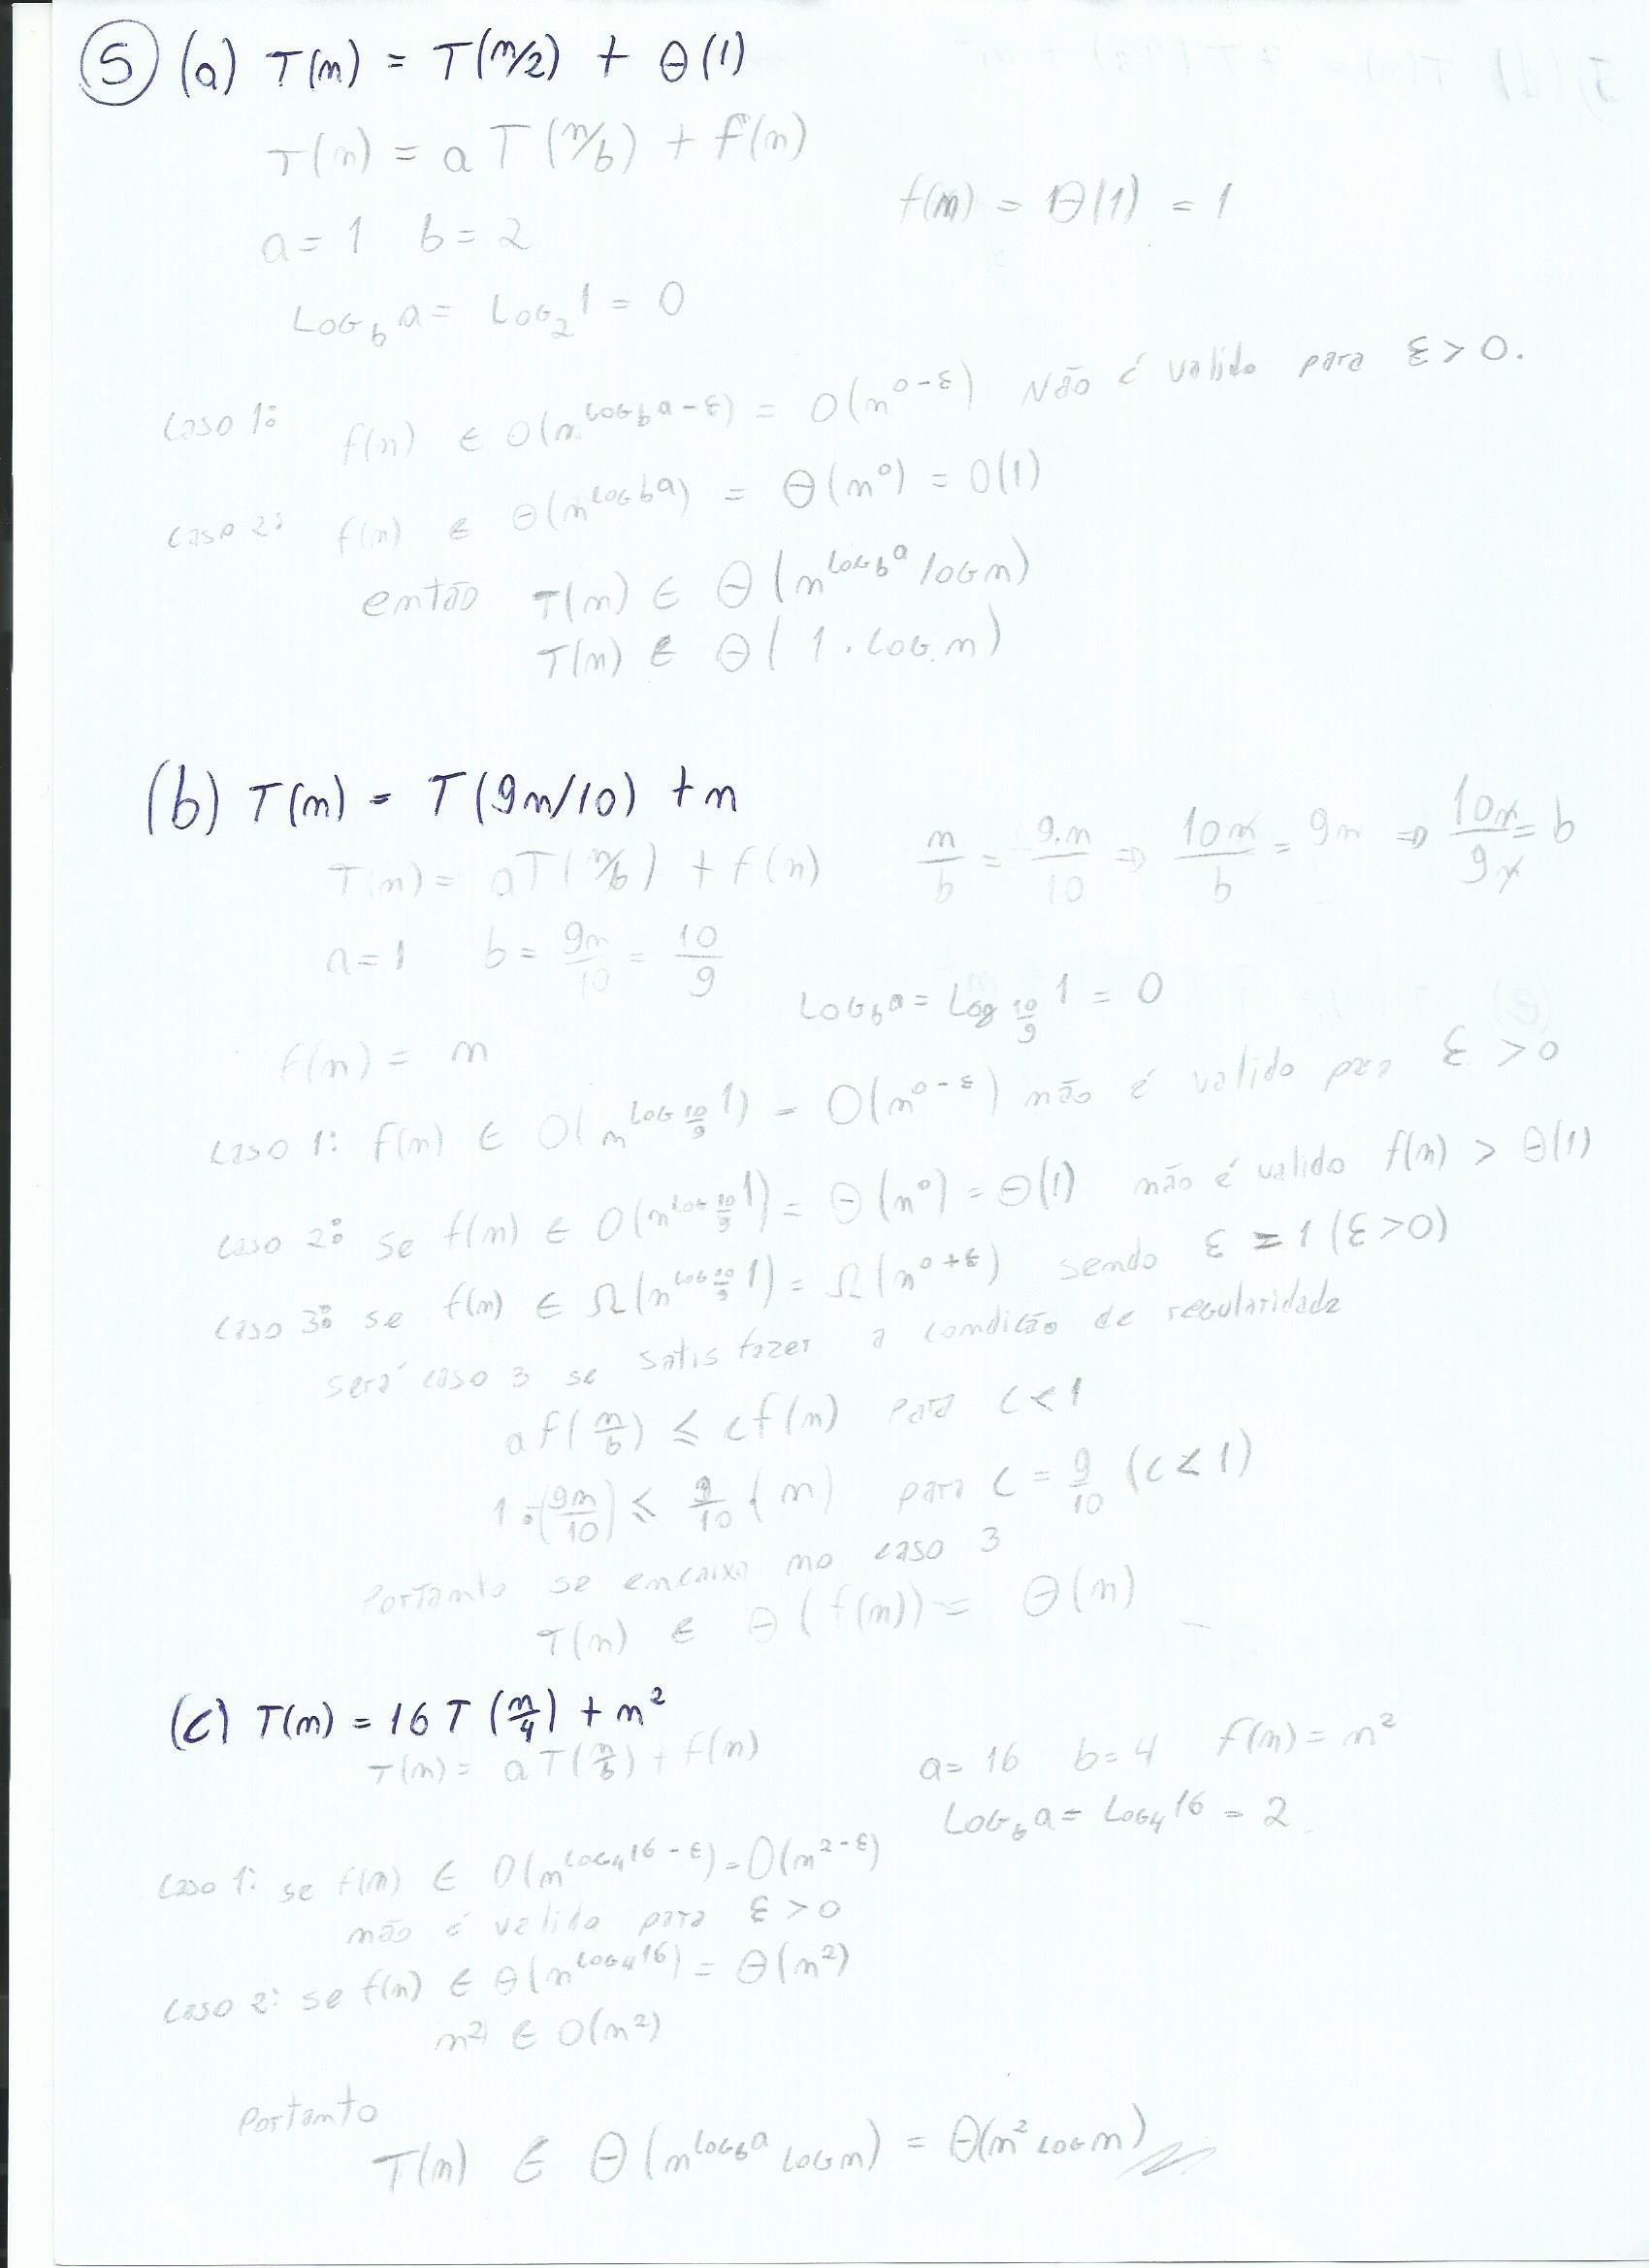 5 (a) T(n) = T(n/2) + Θ(1)
T(n) = a T(n/b) + f(n)
f(n) = Θ(1) = 1
a = 1 b = 2
Log_b a = Log_2 1 = 0
caso 1: f(n) ∈ O(n^(Log_b a - ε)) = O(n^(0-ε)) Não é valido para ε > 0.
caso 2: f(n) ∈ Θ(n^(Log_b a)) = Θ(n^0) = O(1)
então T(n) ∈ Θ(n^(Log_b a) log n)
T(n) ∈ Θ(1 . Log n)
(b) T(n) = T(9n/10) + n
T(n) = aT(n/b) + f(n) n/b = 9.n/10 ⇒ 10n/b = 9n ⇒ 10n/9n = b
a = 1 b = 9n/10 = 10/9
Log_b a = Log_(10/9) 1 = 0
f(n) = n
caso 1: f(n) ∈ O(n^(Log_(10/9) 1)) = O(n^(0-ε)) não é valido para ε > 0
caso 2: se f(n) ∈ O(n^(Log_(10/9) 1)) = Θ(n^0) = Θ(1) não é valido f(n) > Θ(1)
caso 3: se f(n) ∈ Ω(n^(Log_(10/9) 1)) = Ω(n^(0+ε)) sendo ε = 1 (ε>0)
será caso 3 se satisfazer a condição de regularidade
a f(n/b) ≤ c f(n) para c < 1
1 . (9n/10) ≤ 9/10 (n) para c = 9/10 (c < 1)
Portanto se encaixa no caso 3
T(n) ∈ Θ(f(n)) = Θ(n)
(c) T(n) = 16 T(n/4) + n²
T(n) = a T(n/b) + f(n) a = 16 b = 4 f(n) = n²
Log_b a = Log_4 16 = 2
caso 1: se f(n) ∈ O(n^(Log_4 16 - ε)) = O(n^(2-ε))
não é valido para ε > 0
caso 2: se f(n) ∈ Θ(n^(Log_4 16)) = Θ(n²)
n² ∈ O(n²)
Portanto
T(n) ∈ Θ(n^(Log_b a) Log n) = Θ(n² Log n)